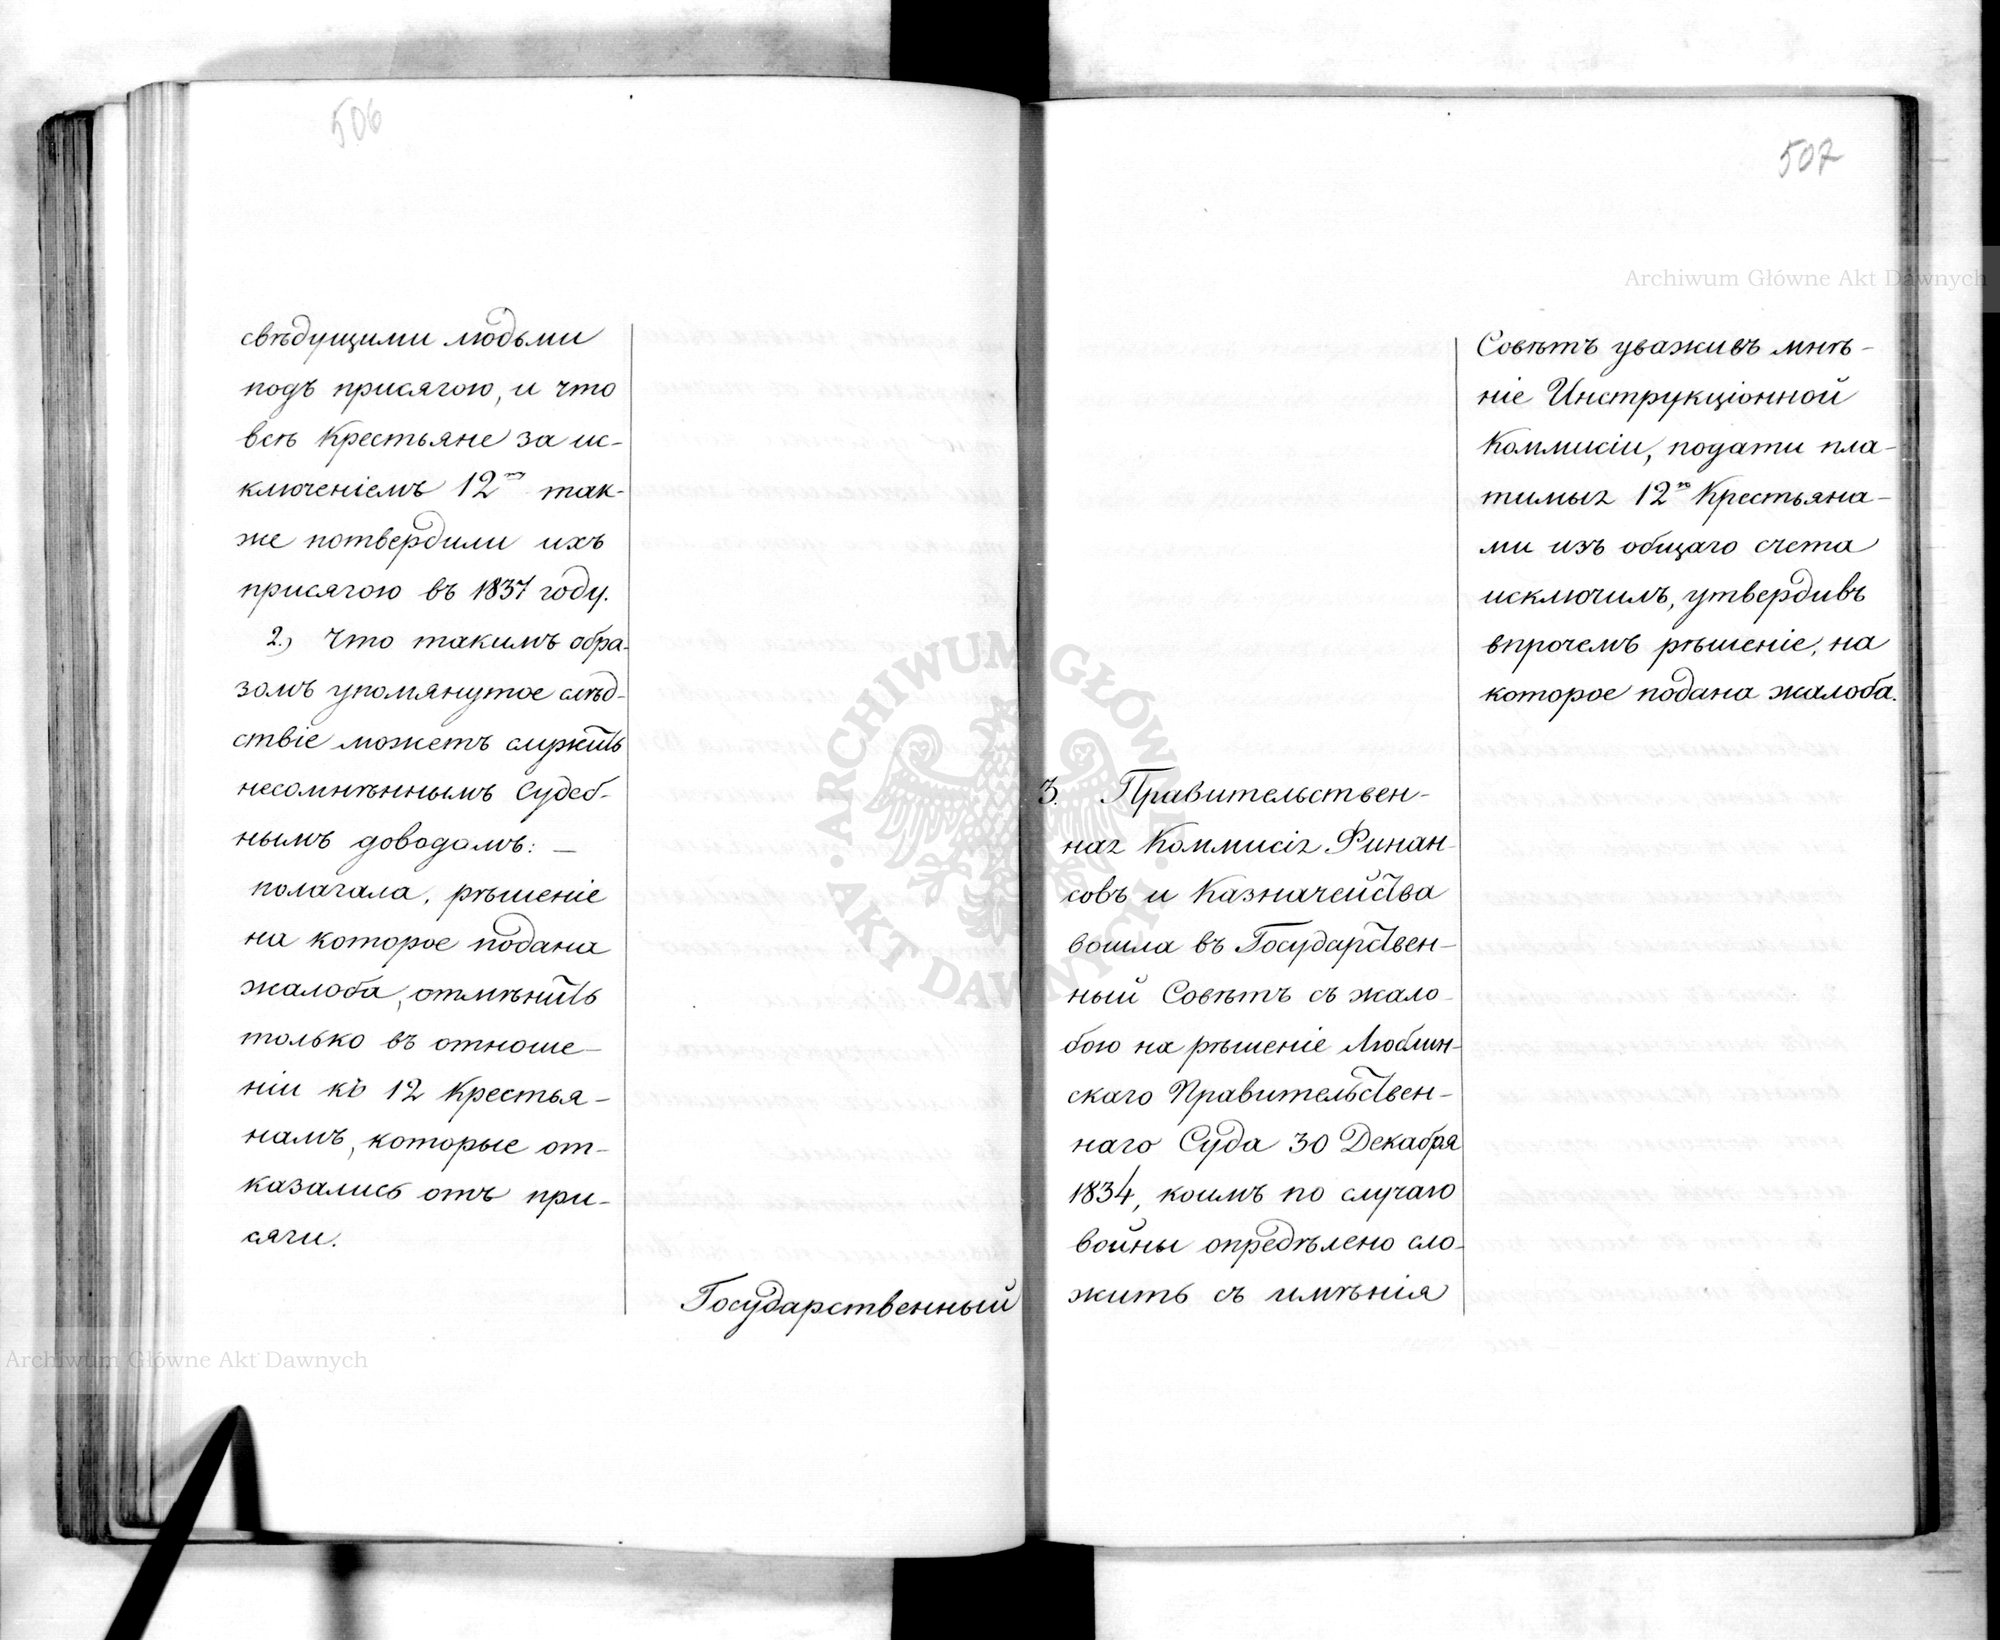 506
свѣдущими людьми
подъ присягою, и что
всѣ Крестьяне за ис-
ключеніемъ 12ти так-
же потвердили ихъ
присягою въ 1837 году.
2.) Что такимъ обра-
зомъ упомянутое слѣд-
ствіе можетъ служить
несомнѣннымъ Судеб-
нымъ доводомъ: —
полагала, рѣшеніе
на которое подана
жалоба, отмѣнить
только въ отноше-
ніи къ 12 Крестья-
намъ, которые от-
казались отъ при-
сяги.
Государственный
507
Совѣтъ уваживъ мнѣ-
ніе Инструкціонной
Коммисіи, подати пла-
тимыя 12ю Крестьяна-
ми изъ общаго счета
исключилъ, утвердивъ
впрочемъ рѣшеніе, на
которое подана жалоба.
3. Правительствен-
ная Коммисія Финан-
совъ и Казначейства
вошла въ Государствен-
ный Совѣтъ съ жало-
бою на рѣшеніе Люблин-
скаго Правительствен-
наго Суда 30 Декабря
1834, коимъ по случаю
войны опредѣлено сло-
жить съ имѣнія
Archiwum Główne Akt Dawnych
Archiwum Główne Akt Dawnych
ARCHIWUM GŁÓWNE · AKT DAWNYCH ·